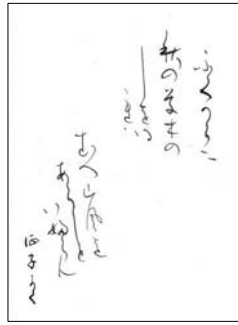 ふくからに
秋の草木の
しをる
れは
むへ山風を
あらしと
いふらん